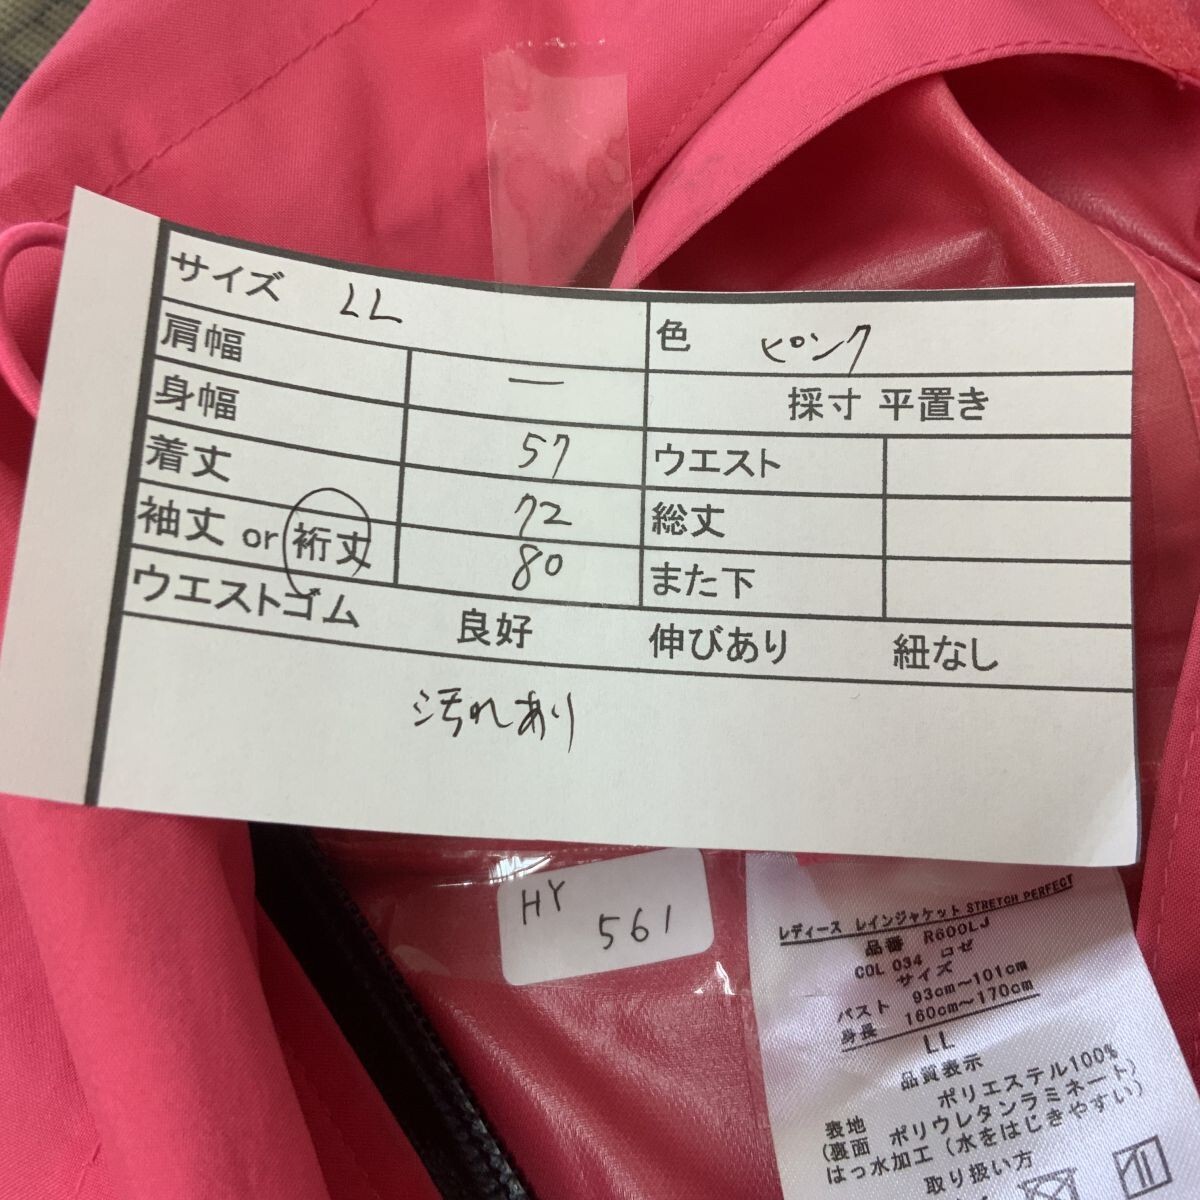 サイズ LL
色 ピンク
肩幅 —
採寸 平置き
身幅 57
ウエスト
着丈 72
総丈
袖丈 or 裄丈 80
また下
ウエストゴム 良好 伸びあり 紐なし
汚れあり
HY
561
レディース レインジャケット STRETCH PERFECT
品番 R600LJ
COL 034 ロゼ
サイズ
バスト 93cm～101cm
身長 160cm～170cm
LL
品質表示
ポリエステル100%
表地
(裏面 ポリウレタンラミネート)
はっ水加工 (水をはじきやすい)
取り扱い方